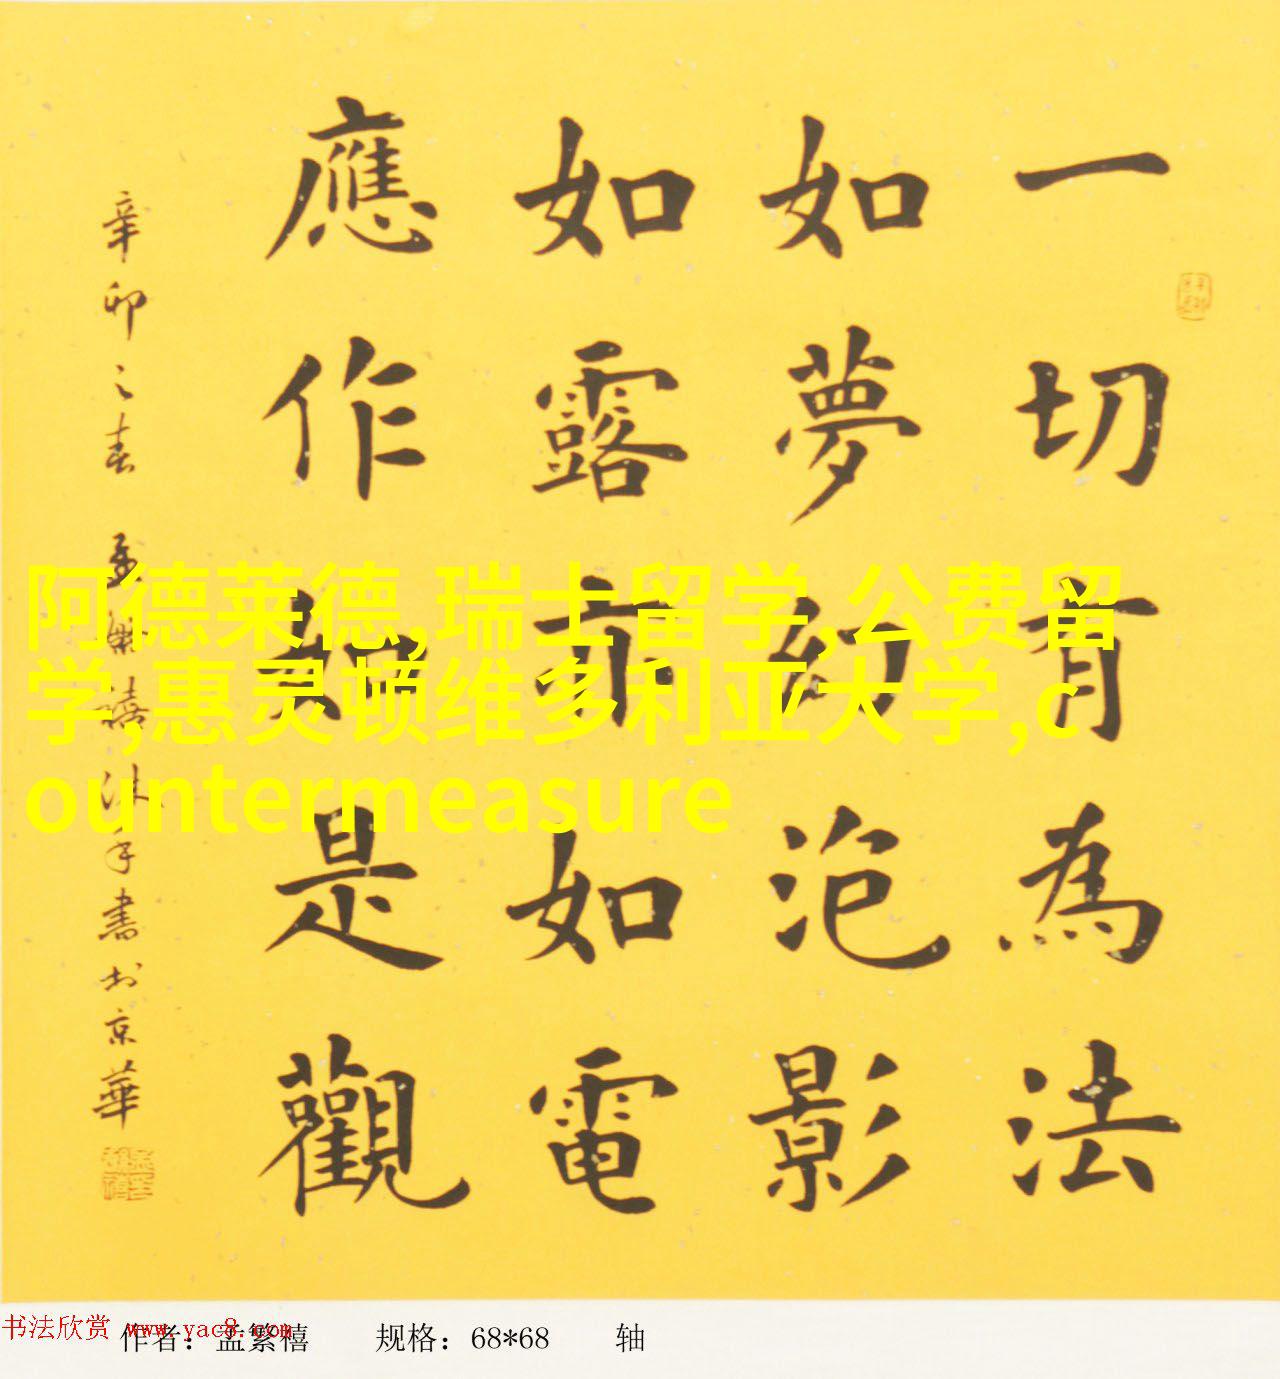 一切有為法
如夢幻泡影
如露亦如電
應作如是觀
辛卯之春 孟繁禧沐手書於京華
阿德莱德,瑞士留学,公费留
学,惠灵顿维多利亚大学,c
ountermeasure
书法欣赏 www.yac8.com
作者：孟繁禧 规格：68*68 轴